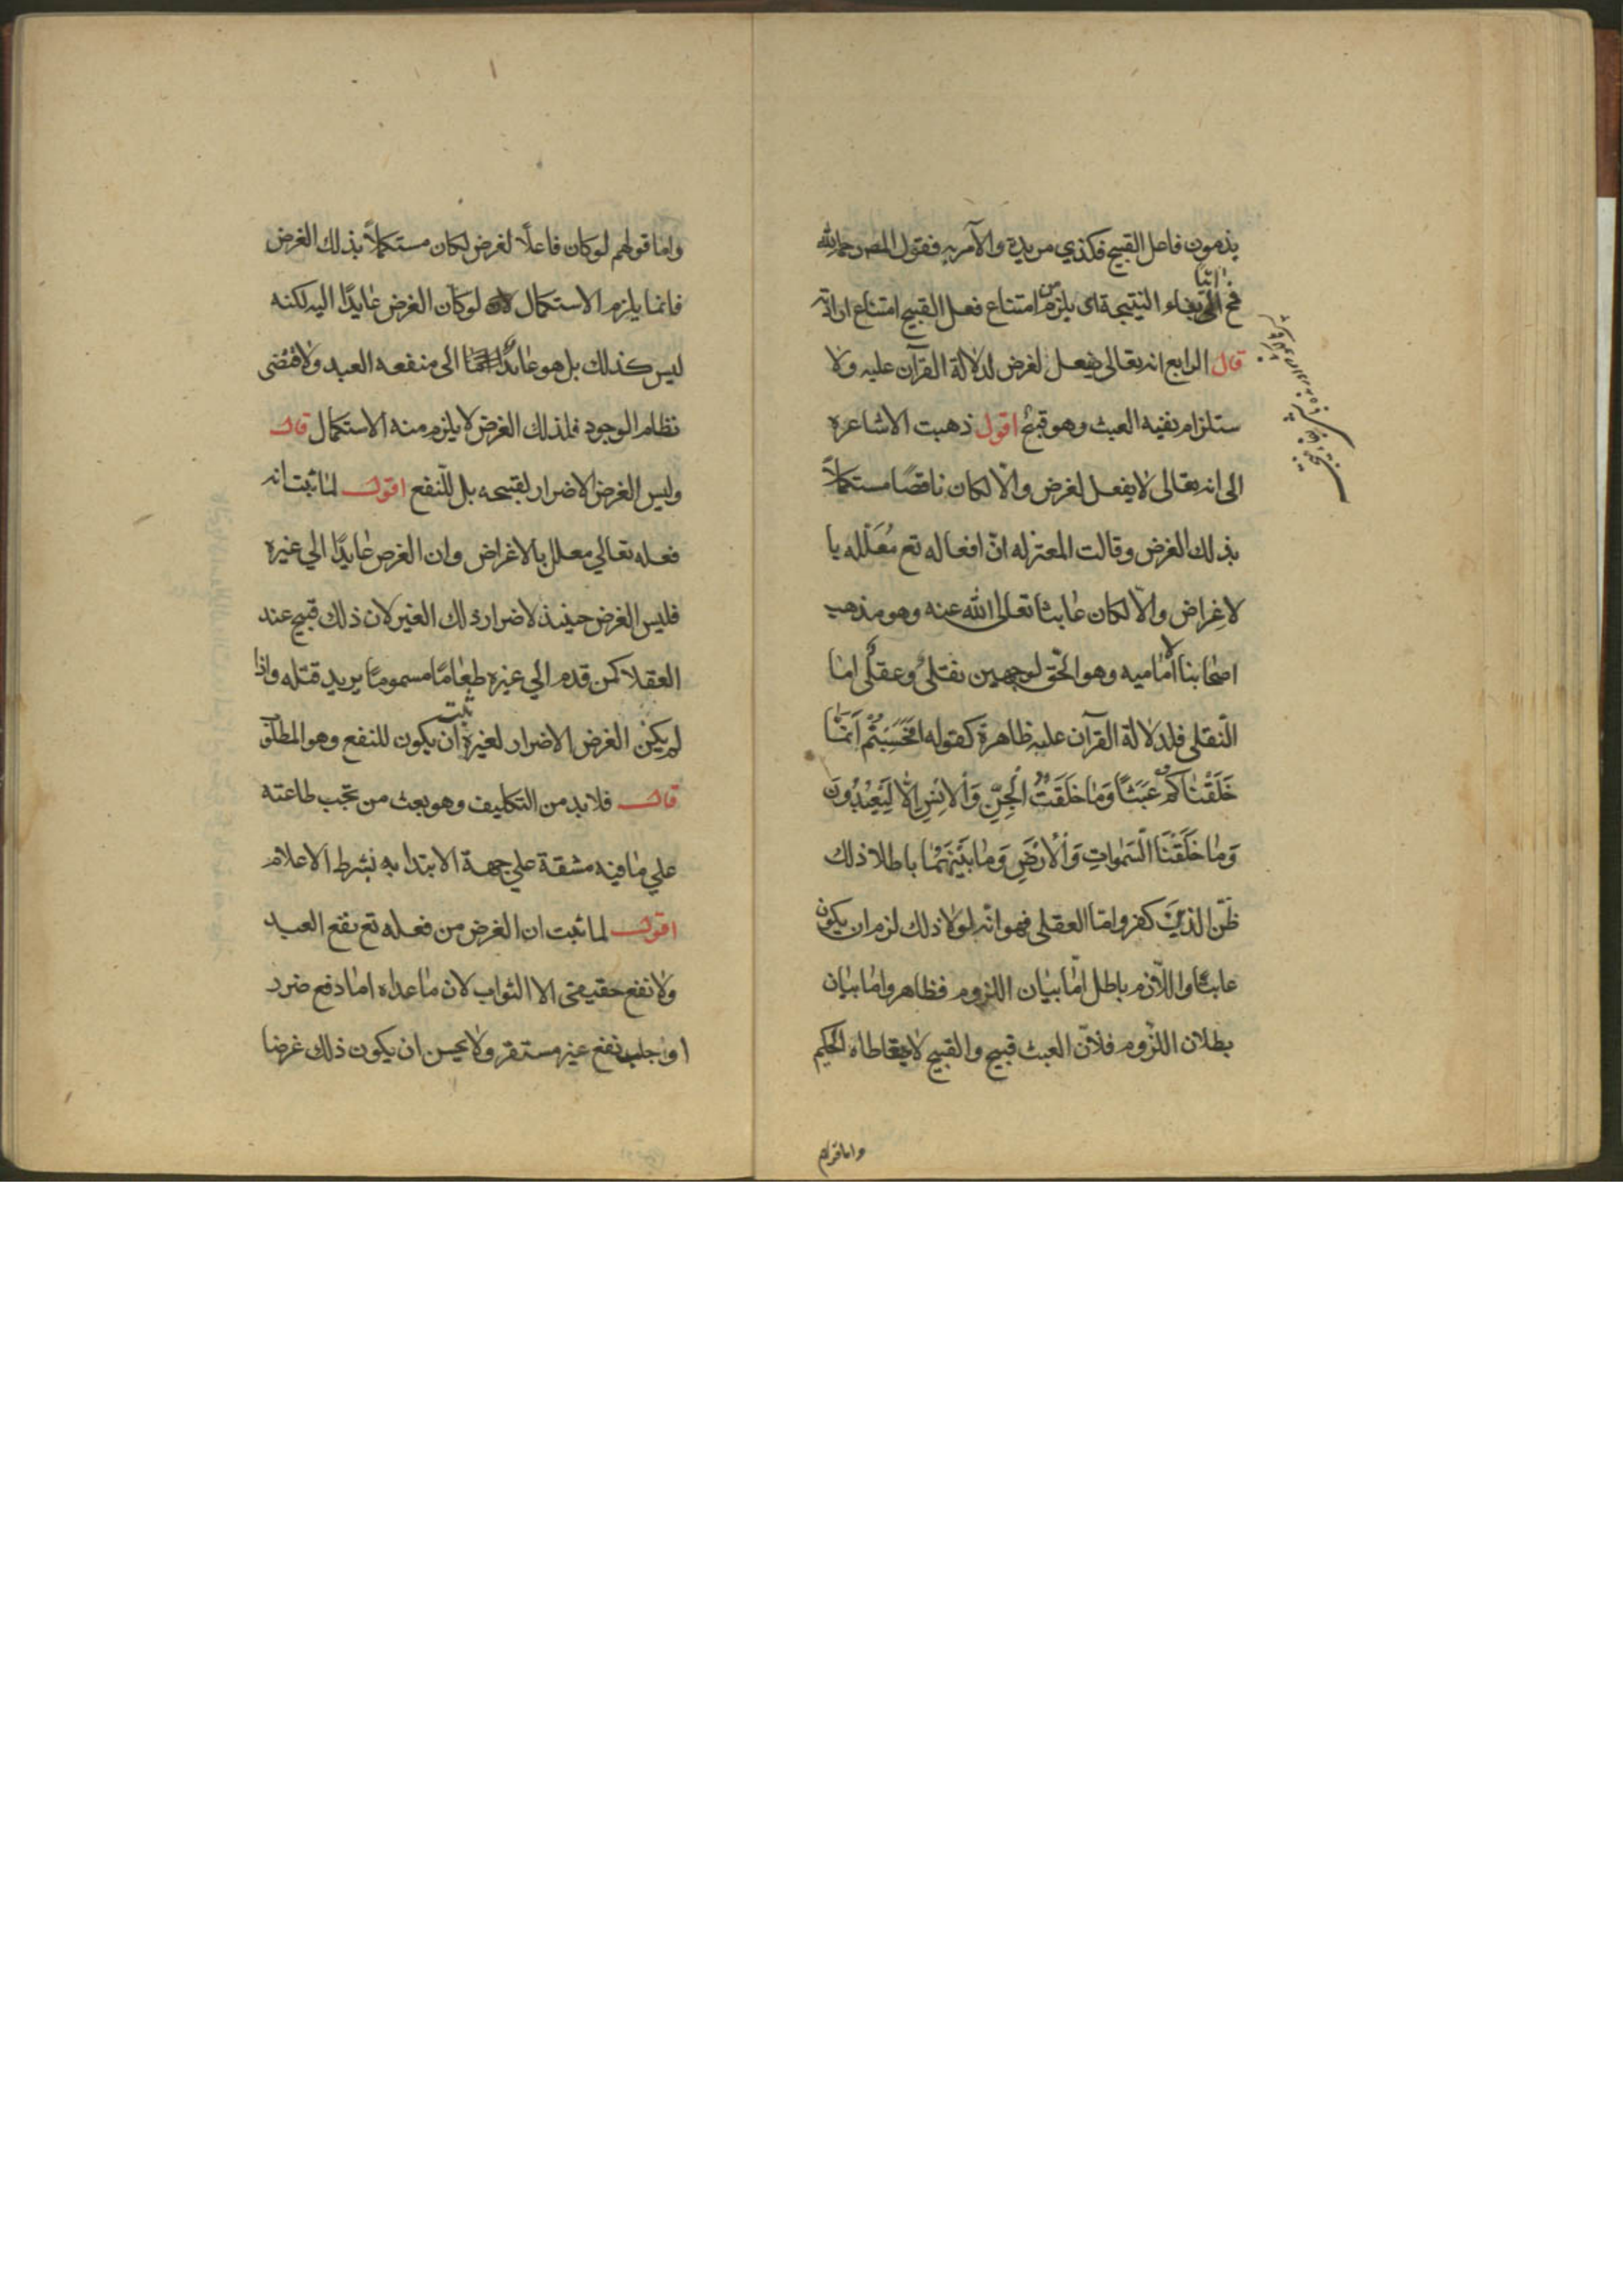 يذمون فاعل القبيح فكذي مريدة والآمر به فقول المصر رحمه الله
فح اتيا بفاء النتيجة اى يلزم من امتناع فعل القبيح امتناع ارادته
قال الرابع انه يقالى يفعل لغرض لدلالة القرآن عليه ولا
ستلزام نفيه العبث وهو قبيح اقول ذهبت الاشاعره
الى انه يقالى لا يفعل لغرض والّا لكان ناقصًا مستكملاً
بذلك الغرض وقالت المعتزله انّ افعاله تع مُعَلّله با
لاغراض والّا لكان عابثا تعلى الله عنه وهو مذهب
اصحابنا الاماميه وهو الحّق لوجهين نقلىٌ وعقلىٌ امّا
النّقلى فلدلالة القرآن عليه ظاهرة كقوله افَحَسِبْتُمْ اَنَّمٰا
خَلَقْنٰاكُمْ عَبَثًا وَمٰا خَلَقْتُ الْجِنَّ وَالْاِنْسِ اِلّٰا لِيَعْبُدُونَ
وَمٰا خَلَقْنَا السَّمٰواتِ وَالْاَرْضَ وَمٰا بَيْنَهُمٰا باطلا ذلك
ظَنّ الذينَ كفروا امّا العقلى فهو انّه لولا ذلك لزم ان يكون
عابثًا واللّازم باطل امّا بيٰان اللزوم فظاهر وامّا بيٰان
بطلان اللزّوم فلانّ العبث قبيح والقبيح لا يتعاطاه الحكيم
واما قولهم
واما قولهم لو كان فاعلًا لغرض لكان مستكملاً بذلك الغرض
فانما يلزم الاستكمال لو كان الغرض عٰايدًا اليه لكنه
ليس كذلك بل هو عٰايدٌ الى منفعه العبد ولاقتضى
نظام الوجود فلذلك الغرض لا يلزم منه الاستكمال قال
وليس الغرض الاضرار لقبيحه بل للّنفع اقول لمّا ثبت انه
فعله تعالي معلل بالاغراض وان الغرض عٰايدًا الي غيره
فليس الغرض حينئذ لاضرار ذلك الغير لان ذلك قبيح عند
العقلا كمن قدم الي غيره طعٰامًا مسمومًا يريد قتله واذا
لم يكن الغرض الاضرار لغيره ثبت ان يكون للنفع وهو المطلوب
قال فلا بد من التكليف وهو بعث من تجب طاعته
علي مٰا فيه مشقة علي جهة الابتدا به بشرط الاعلام
اقول لما ثبت ان الغرض من فعله تع نفع العبد
ولا نفع حقيقى الا الثواب لان مٰا عداه امٰا دفع ضرر
او جلب نفع غير مستقر ولا يحسن ان يكون ذلك غرضا